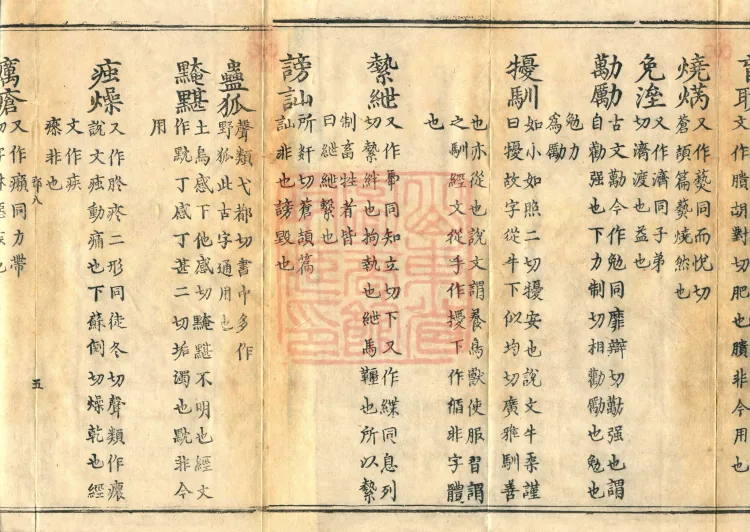 文作膭胡對切肥也膭非今用也
燒焫
又作爇同而悅切
蒼頡篇爇燒然也
免溼
又作濟同子弟
切濟渡也益也
勱勵
古文勱今作勉同靡辯切勱强也謂
自勸强也下力制切相勸勵也勉也
勉力
為勵
擾馴
如小如照二切擾安也說文牛柔謹
曰擾故字從牛下似均切廣雅馴善
也亦從也說文謂養鳥獸使服習謂
之馴經文從手作擾下作循非字體
也
縶紲
又作馽同知立切下又作緤同息列
切縶絆也拘執也紲馬韁也所以縶
制畜牲者皆
曰紲紲縶也
謗訕
所奸切蒼頡篇
訕非也謗毀也
蠱狐
聲類弋都切書中多作
野狐此古字通用也
黤黮
土烏感下他感切黤黮不明也經文
作黕丁感丁甚二切垢濁也黕非今
用
痋燥
又作疼二形同徒冬切聲類作癑
說文痋動痛也下蘇倒切燥乾也經
文作疾
瘵非也
五
癘瘡
又作癩同力帶
切字林惡疾也